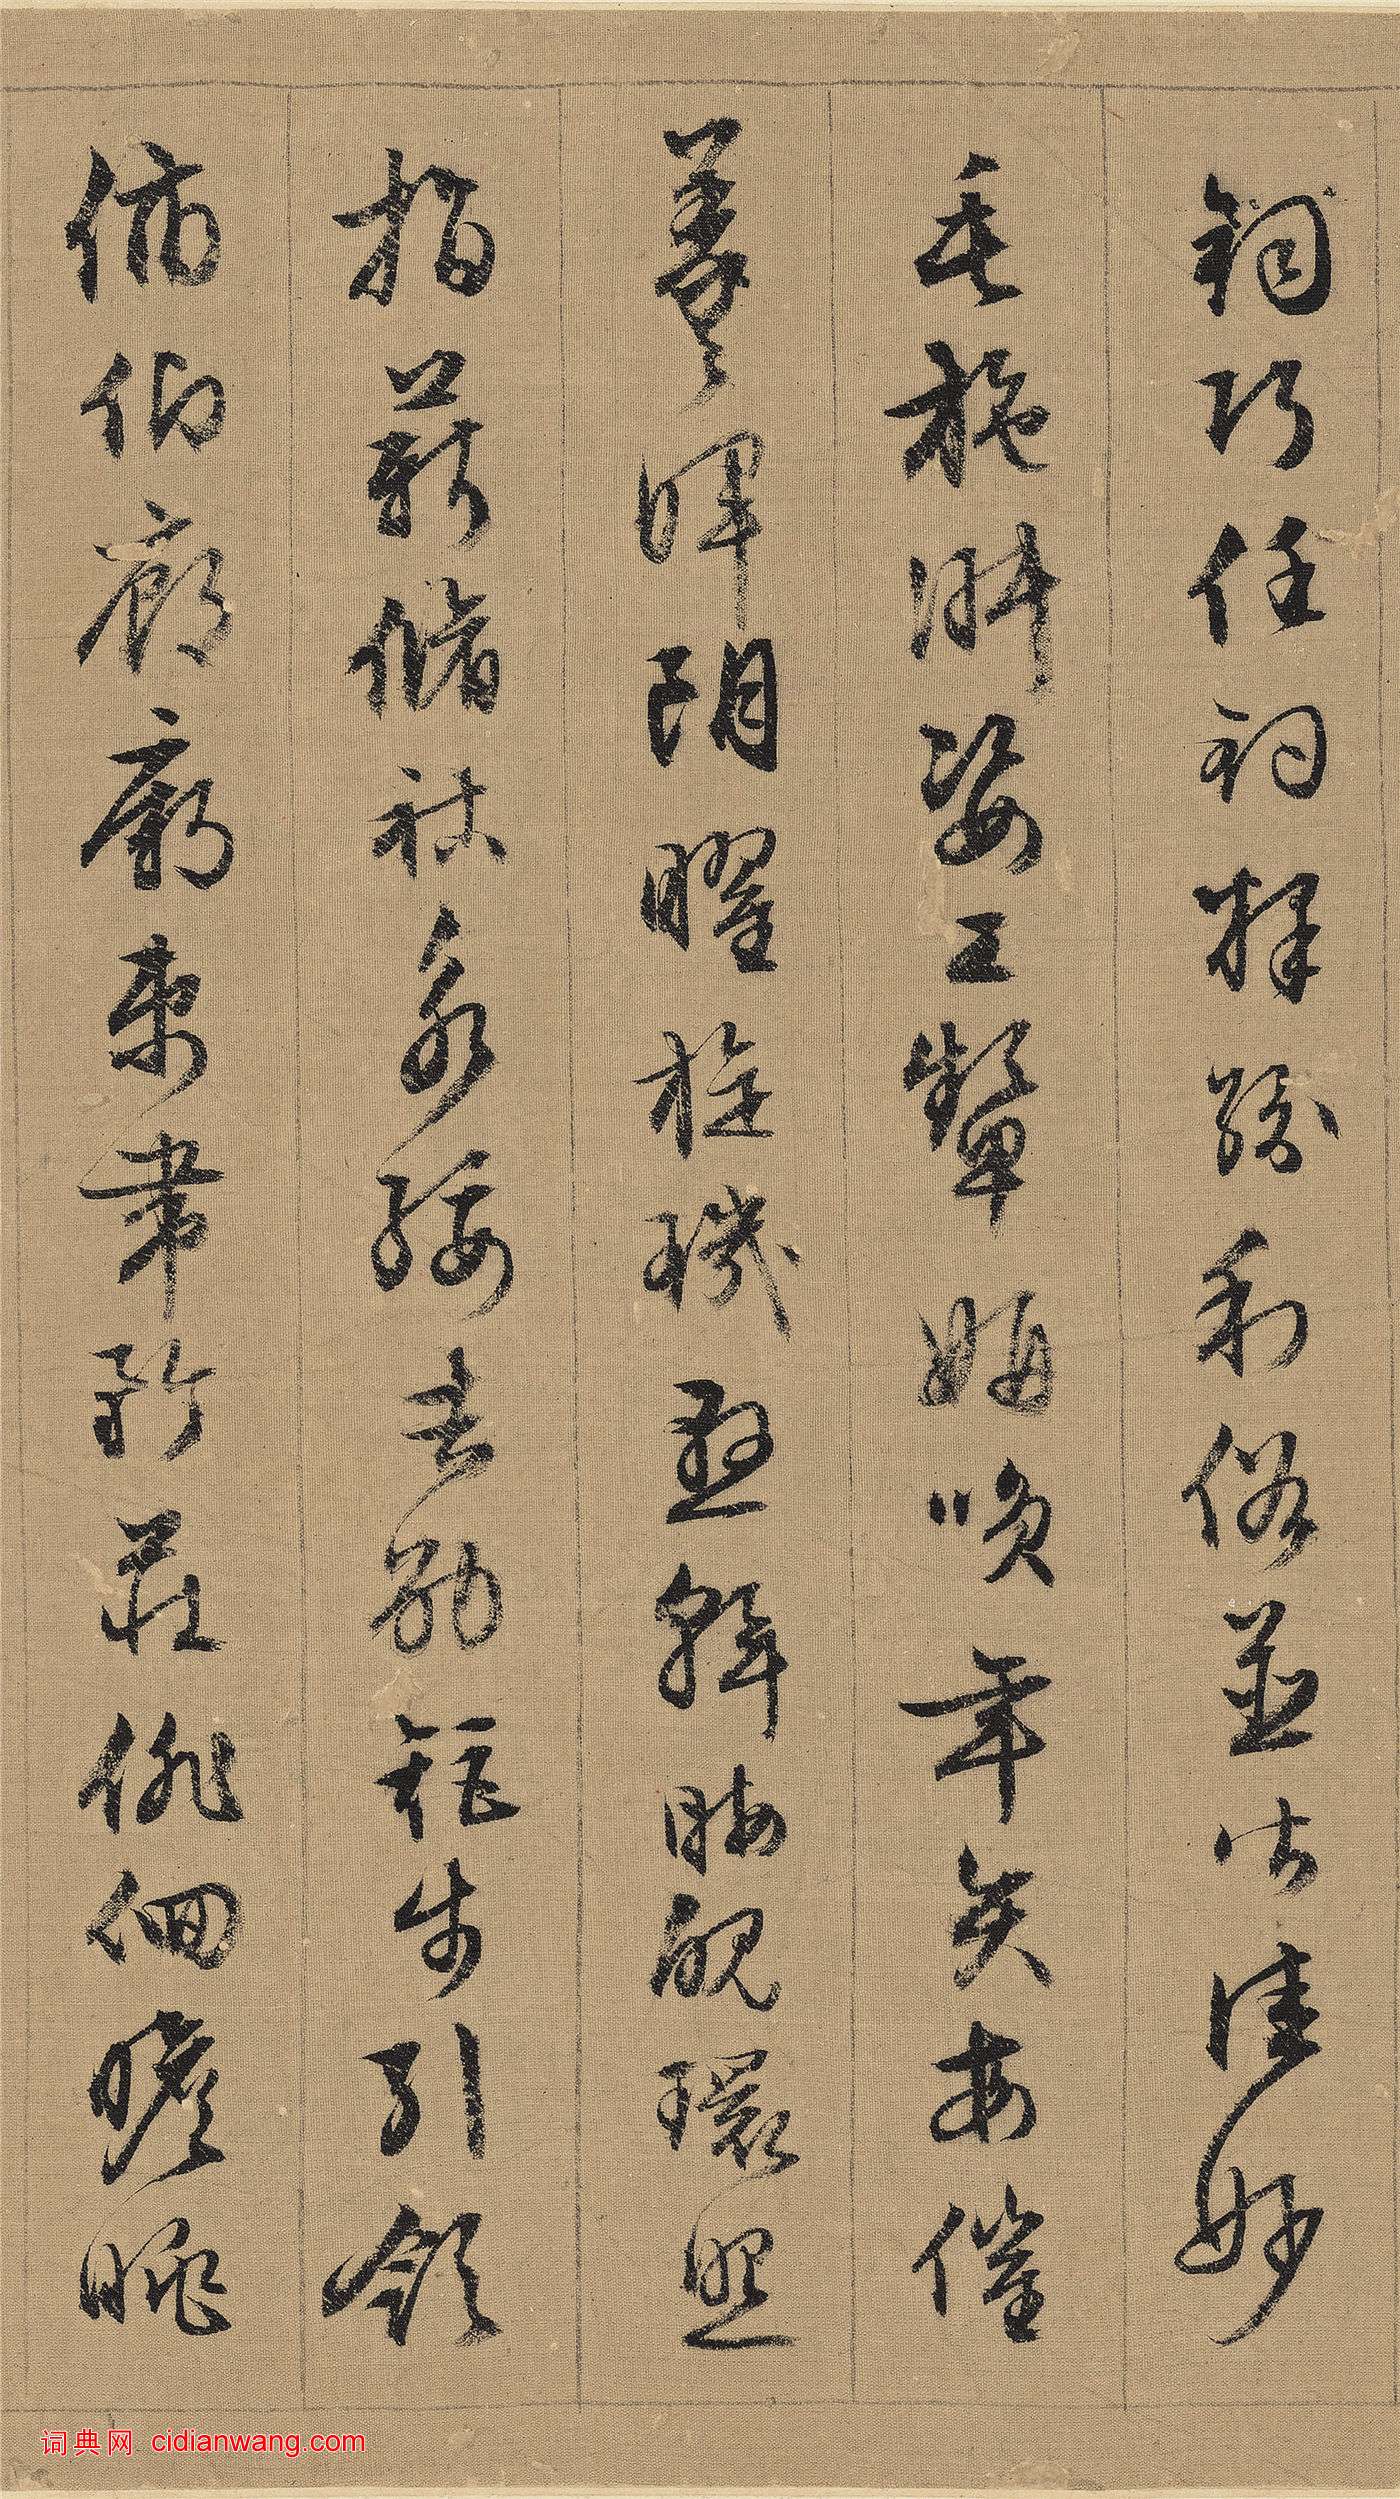 鈞巧任鈞釋紛利俗並皆佳妙
毛施淑姿工顰妍笑年矢每催
羲暉朗曜旋璣懸斡晦魄環照
指薪脩祜永綏吉劭矩步引領
俯仰廊廟束帶矜莊徘徊瞻眺
词典网 cidianwang.com